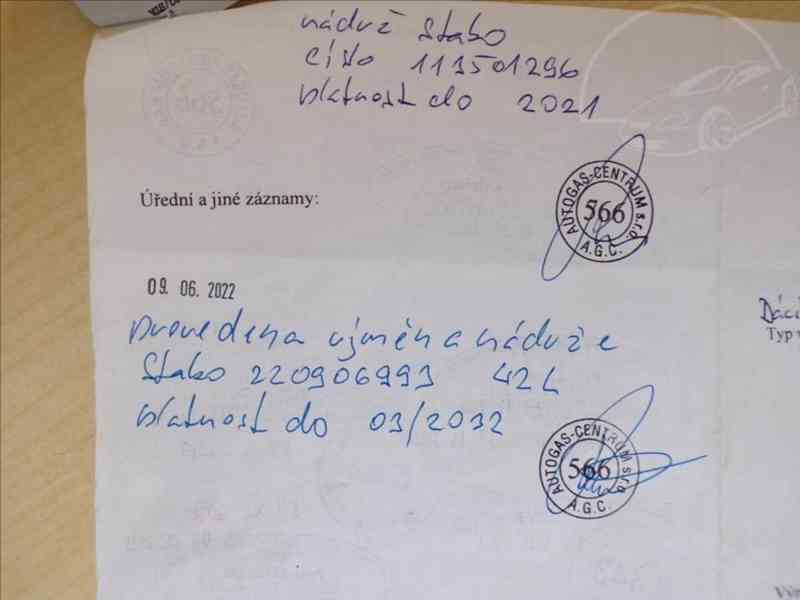 nádrž Stabo
číslo 113501296
platnost do 2021
AUTOGAS-CENTRUM s.r.o.
566
A.G.C.
Úřední a jiné záznamy:
09. 06. 2022
Provedena výměna nádrže
Stabo 220906993 42L
platnost do 03/2032
AUTOGAS-CENTRUM s.r.o.
566
A.G.C.
Typ